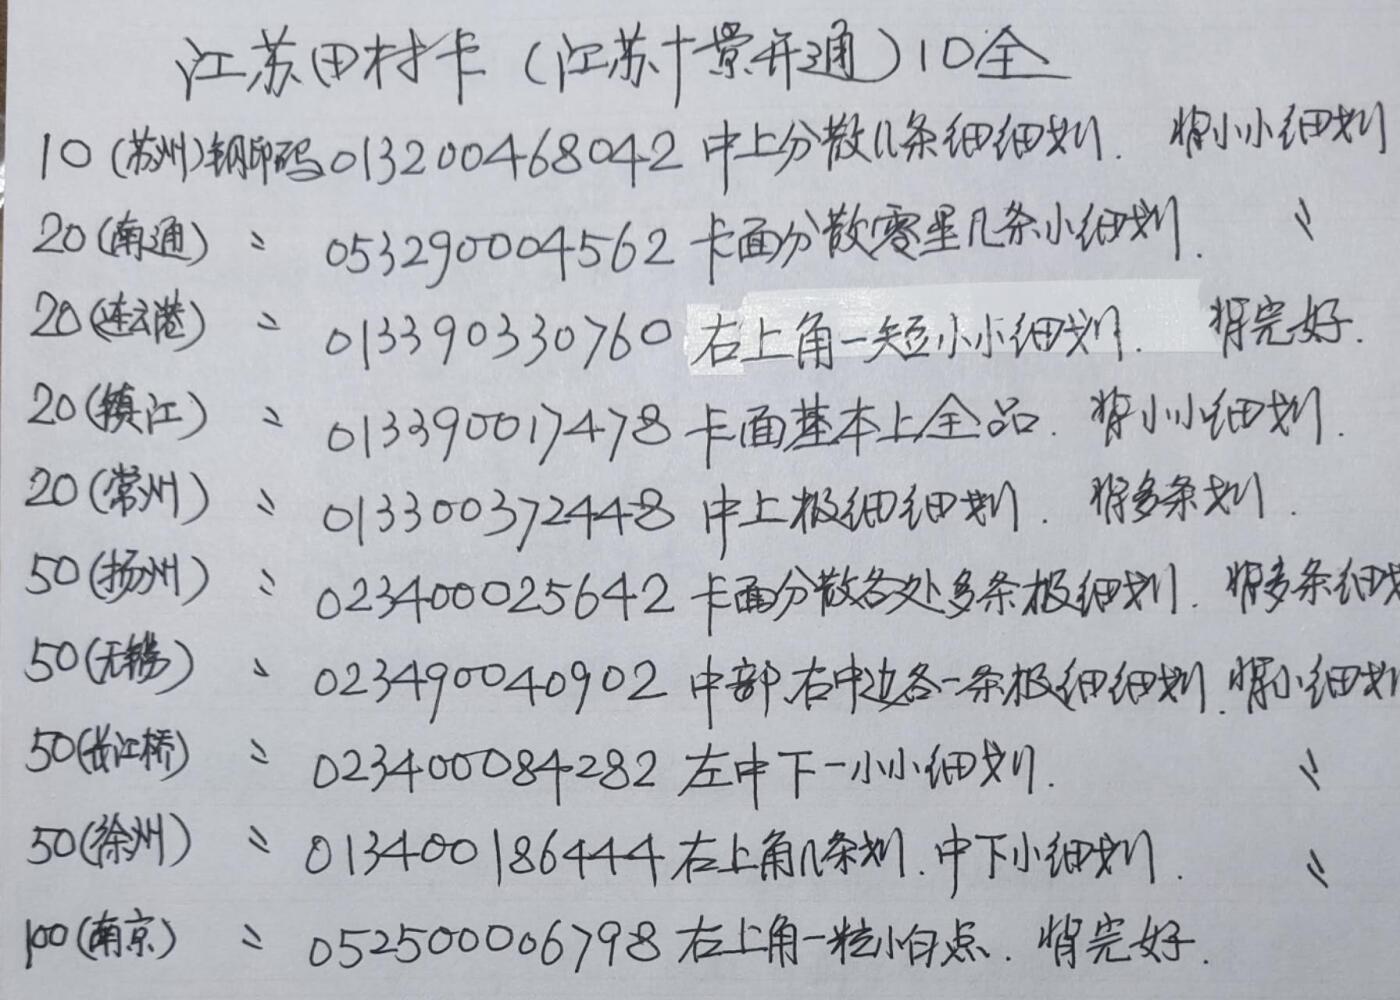 江苏田村卡（江苏十景开通）10全
10（苏州）钢印码013200468042 中上分散几条细细划. 背小小细划
20（南通） 〃 0532900004562 卡面分散零星几条小细划. 〃
20（连云港） 〃 013390330760 右上角一短小小细划. 背完好.
20（镇江） 〃 013390017478 卡面基本上全品. 背小小细划.
20（常州） 〃 013300372448 中上极细细划. 背多条划.
50（扬州） 〃 023400025642 卡面分散各处多条极细划. 背多条细划
50（无锡） 〃 023490040902 中部.右中边各一条极细细划. 背小细划
50（长江桥） 〃 023400084282 左中下一小小细划. 〃
50（徐州） 〃 013400186444 右上角几条划.中下小细划. 〃
100（南京） 〃 052500006798 右上角一粒小白点. 背完好.